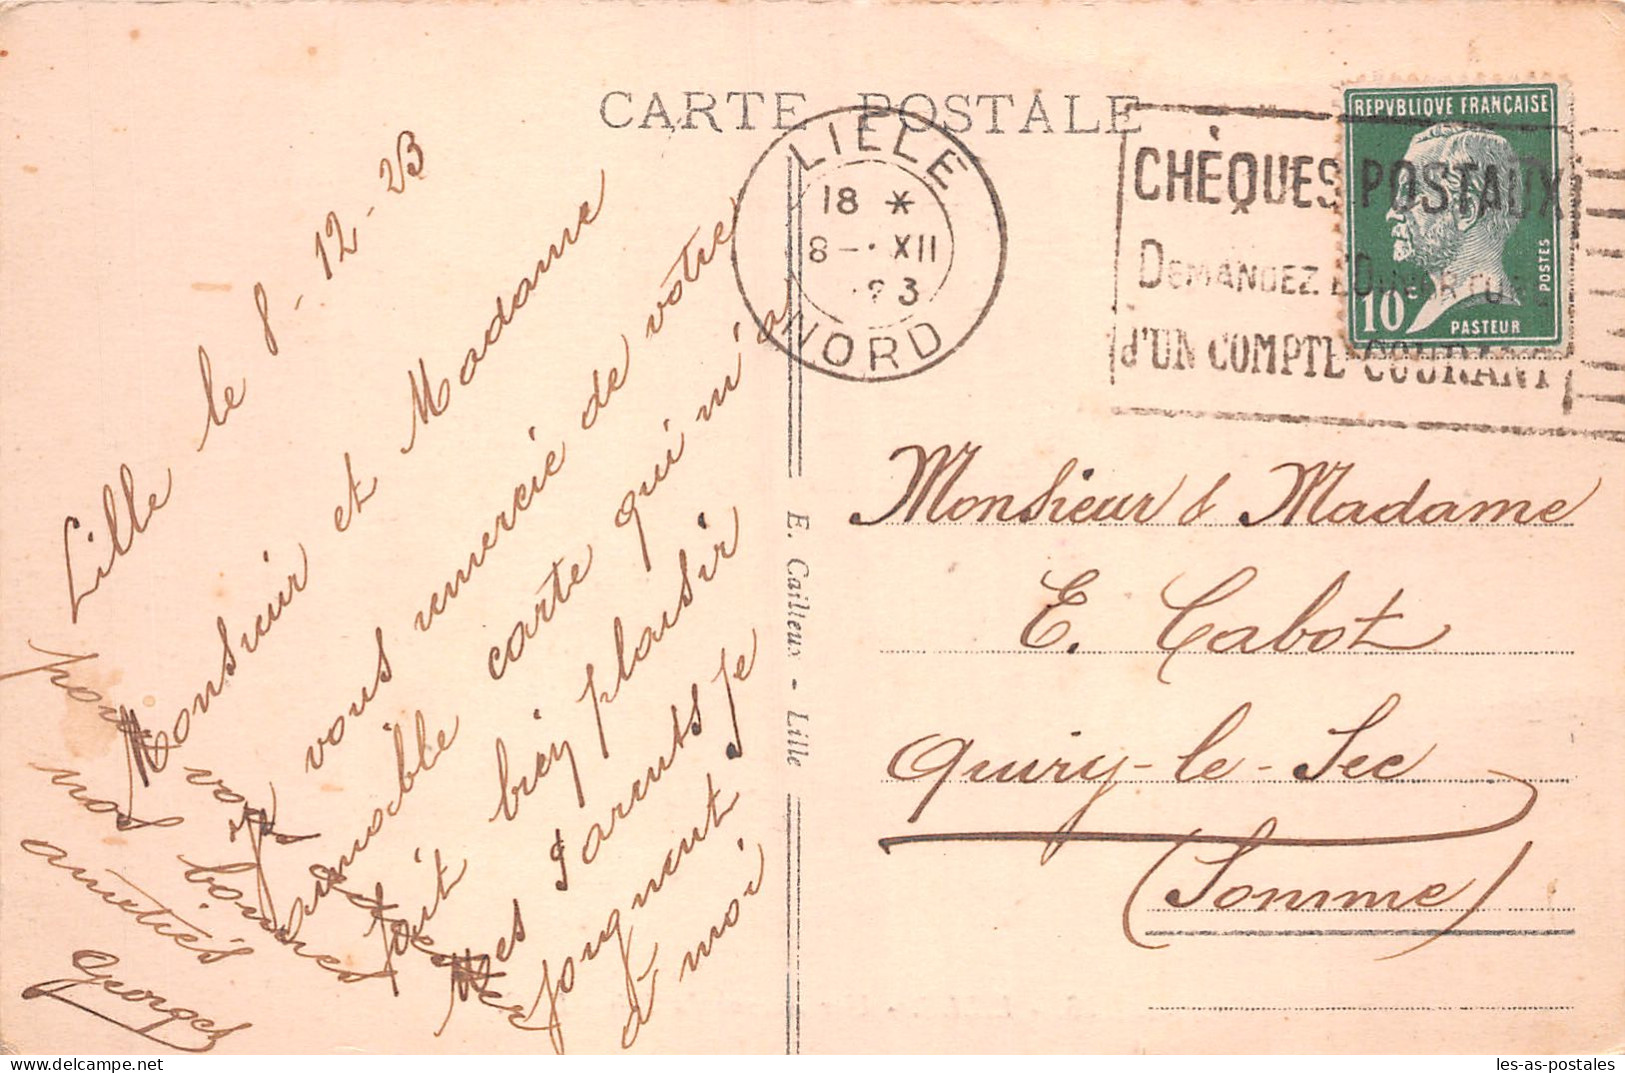 CARTE POSTALE
LILLE
18 *
8 - XII
23
NORD
CHÈQUES POSTAUX
DEMANDEZ L'OUVERTURE
d'UN COMPTE COURANT
REPVBLIQVE FRANÇAISE
POSTES
10c
PASTEUR
Lille le 8-12-23
Monsieur et Madame
Je vous remercie de votre
aimable carte qui m'a
fait bien plaisir
Mes Parents se
joignent
à moi
pour vous adresser
nos bonnes
amitiés
Georges
E. Cailteux - Lille
Monsieur & Madame
E. Cabot
Quiry-le-Sec
(Somme)
les-as-postales
delcampe.net